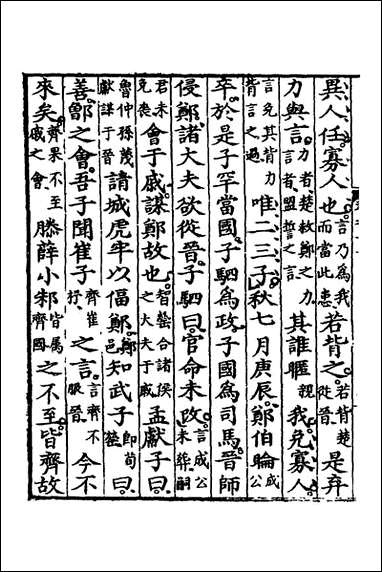 異人任寡人也言乃爲我而當此患若背之若背楚從晉是弃
力與言力者楚救鄭之力言者盟誓之言其誰暱親我免寡人
言免其背力背言之過唯二三子秋七月庚辰鄭伯睔成公
卒於是子罕當國子駟爲政子國爲司馬晉師
侵鄭諸大夫欲從晉子駟曰官命未改言成公未葬嗣
君未免喪會于戚謀鄭故也智罃合諸侯之大夫于戚孟獻子曰
魯仲孫蔑獻謀于晉請城虎牢以偪鄭鄭邑知武子即荀罃曰
善鄫之會吾子聞崔子齊崔杼之言言齊不服晉今不
來矣齊果不至戚之會滕薛小邾皆屬齊國之不至皆齊故